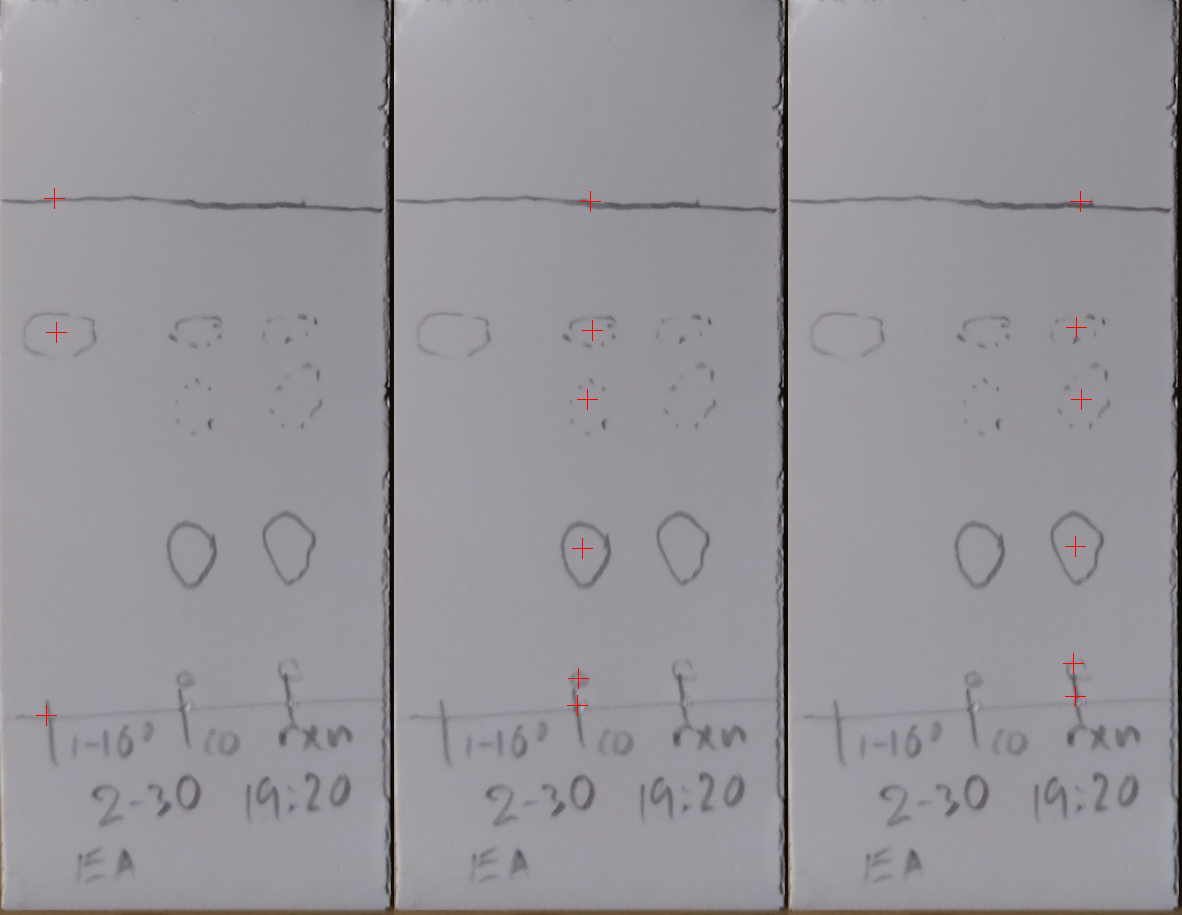 1-160 co rxn
2-30 19:20
EA
1-160 co rxn
2-30 19:20
EA
1-160 co rxn
2-30 19:20
EA